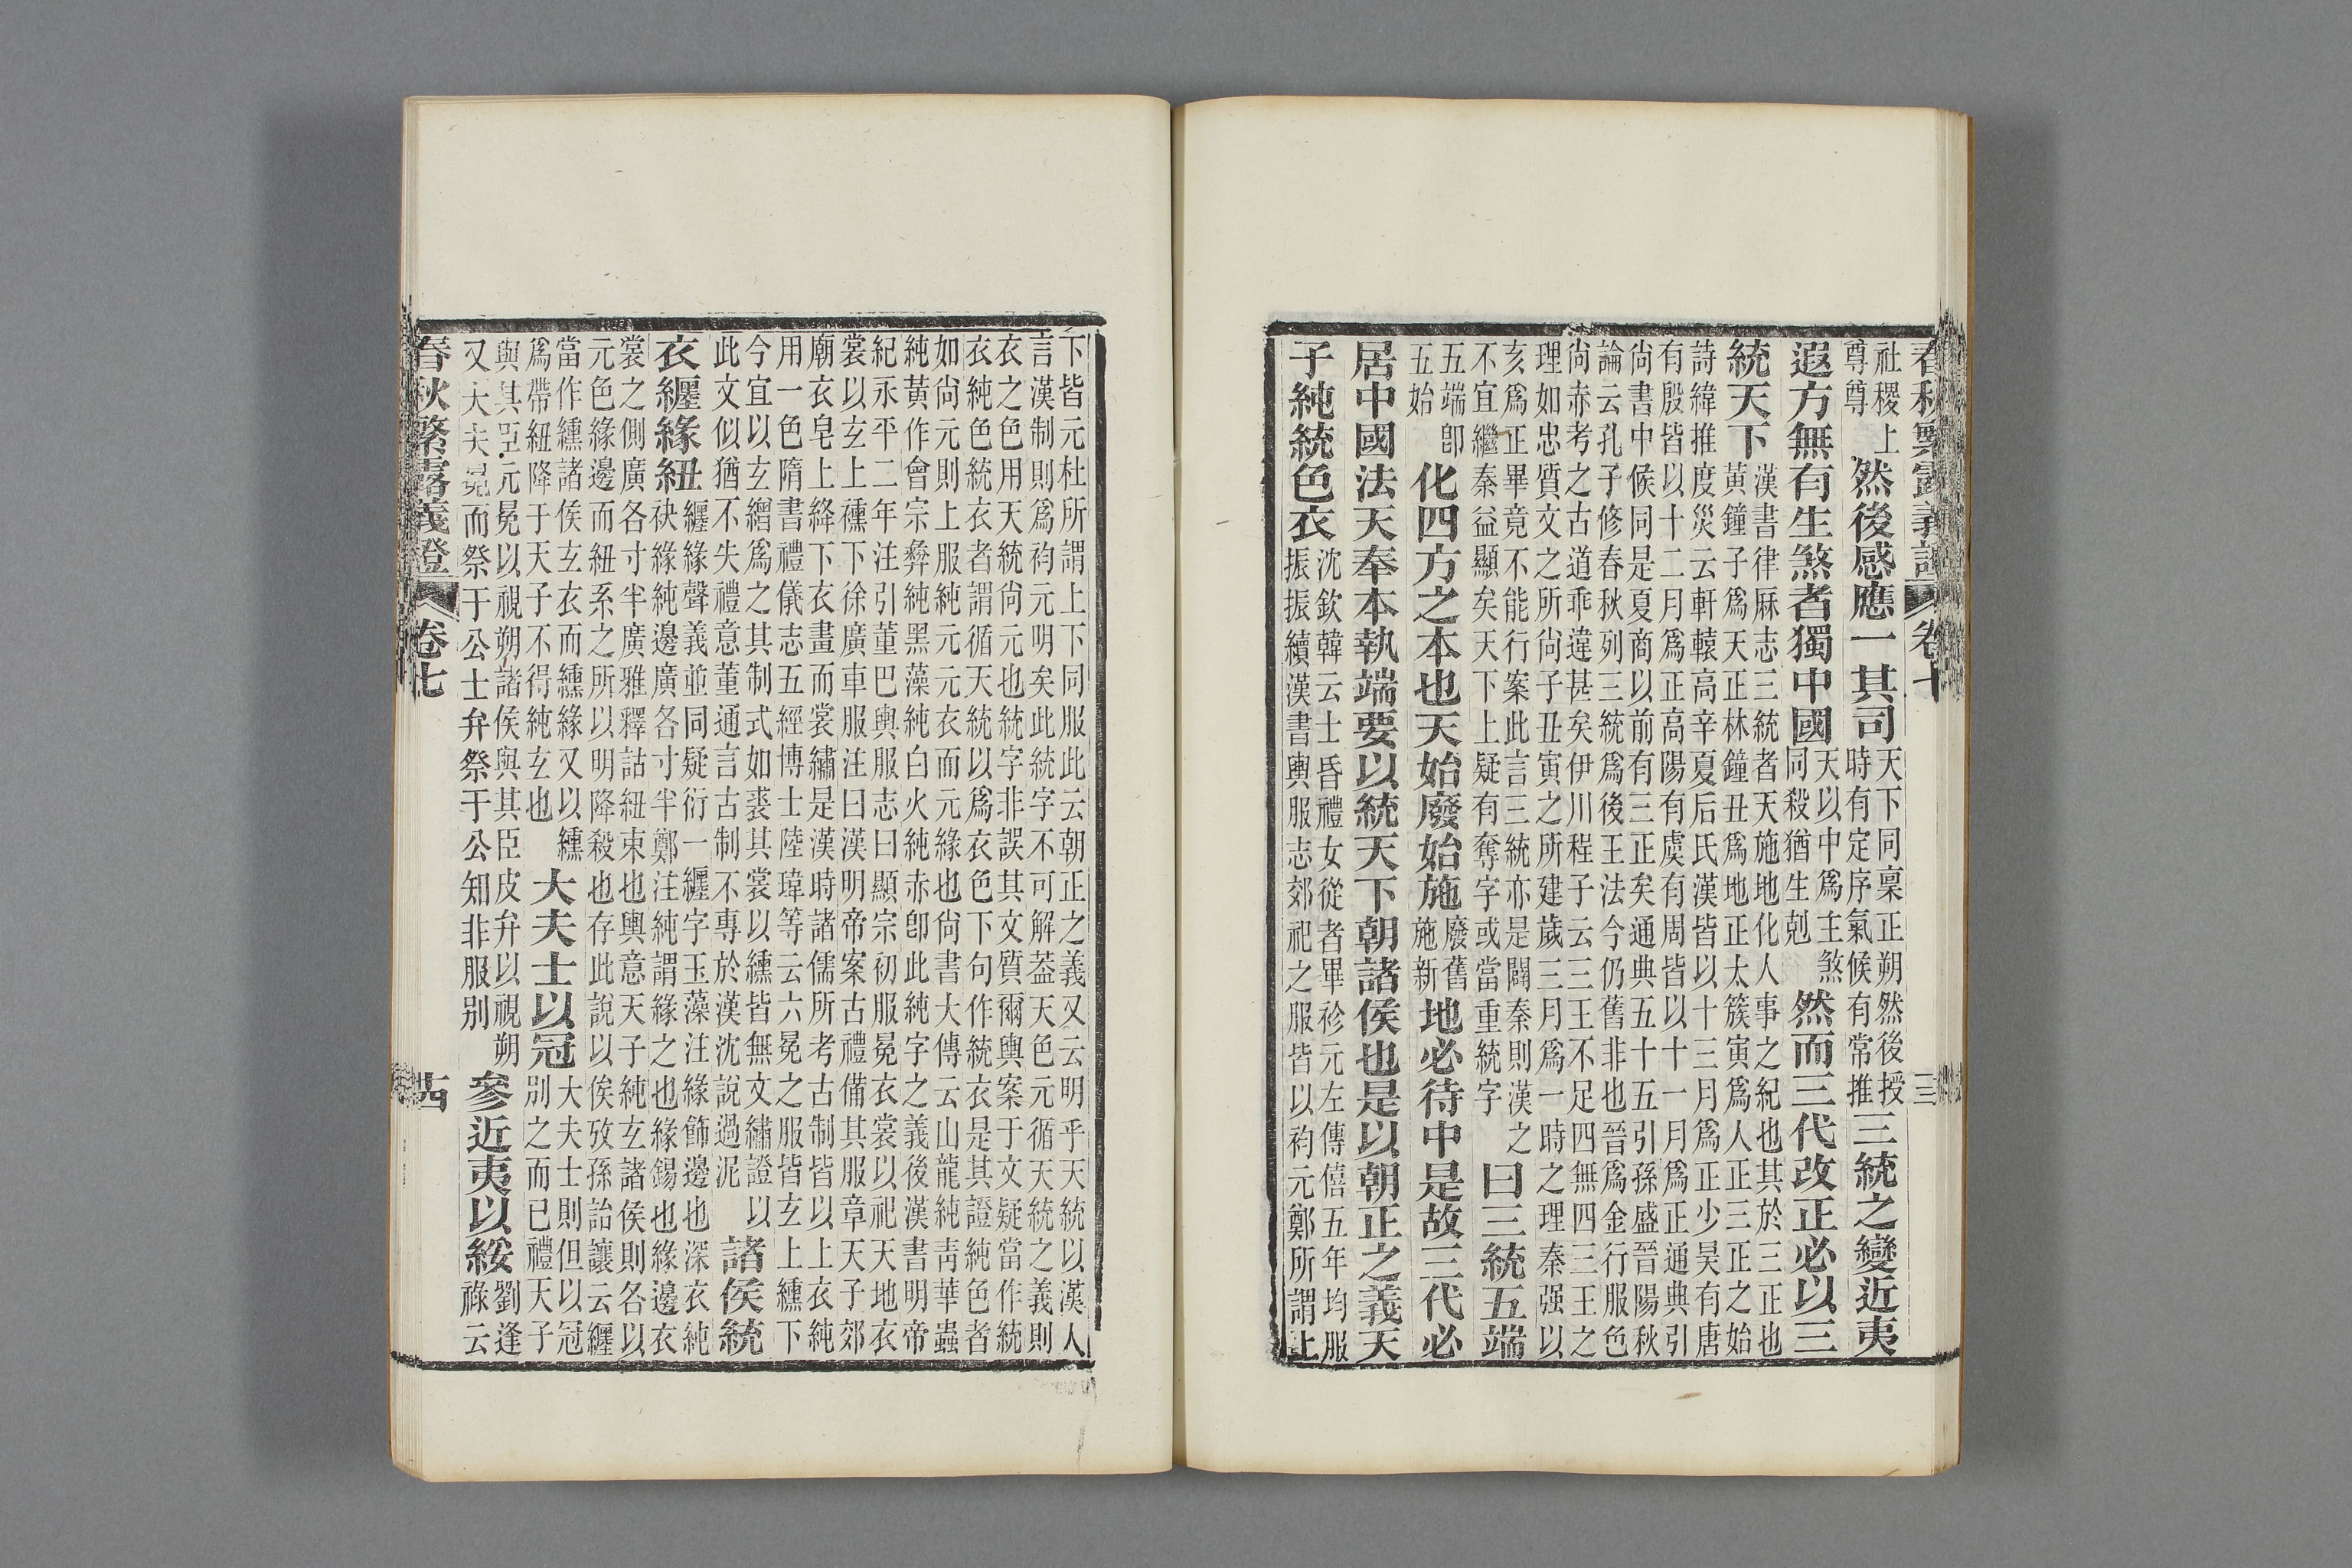 春秋繁露義證 卷七 十三
社稷上
尊尊
然後感應一其司
天下同稟正朔然後授
時有定序氣候有常推
三統之變近夷
遐方無有生煞者獨中國
天以中爲主煞
同殺猶生剋
然而三代改正必以三
統天下
漢書律厤志三統者天施地化人事之紀也其於三正也
黃鐘子爲天正林鐘丑爲地正太簇寅爲人正三正之始
詩緯推度災云軒轅高辛夏后氏漢皆以十三月爲正少昊有唐
有殷皆以十二月爲正高陽有虞有周皆以十一月爲正通典引
尚書中候同是夏商以前有三正矣通典五十五引孫盛晉陽秋
論云孔子修春秋列三統爲後王法今仍舊非也晉爲金行服色
尚赤考之古道乖違甚矣伊川程子云三王不足四無四三王之
理如忠質文之所尚子丑寅之所建歲三月爲一時之理秦强以
亥爲正畢竟不能行案此言三統亦是闢秦則漢之
不宜繼秦益顯矣天下上疑有奪字或當重統字
曰三統五端
五端卽
五始
化四方之本也天始廢始施
廢舊
施新
地必待中是故三代必
居中國法天奉本執端要以統天下朝諸侯也是以朝正之義天
子純統色衣
沈欽韓云士昏禮女從者畢袗元左傳僖五年均服
振振續漢書輿服志郊祀之服皆以袀元鄭所謂上
下皆元杜所謂上下同服此云朝正之義又云明乎天統以漢人
言漢制則爲袀元明矣此統字不可解葢天色元循天統之義則
衣之色用天統尚元也統字非誤其文質爾輿案于文疑當作統
衣純色統衣者謂循天統以爲衣色下句作統衣是其證純色者
如尚元則上服純元元衣而元緣也尚書大傳云山龍純靑華蟲
純黃作會宗彝純黑藻純白火純赤卽此純字之義後漢書明帝
紀永平二年注引董巴輿服志曰顯宗初服冕衣裳以祀天地衣
裳以玄上纁下徐廣車服注曰漢明帝案古禮備其服章天子郊
廟衣皂上絳下衣畫而裳繡是漢時諸儒所考古制皆以上衣純
用一色隋書禮儀志五經博士陸瑋等云六冕之服皆玄上纁下
今宜以玄繒爲之其制式如裘其裳以纁皆無文繡證以
此文似猶不失禮意董通言古制不專於漢沈說過泥
諸侯統
衣纏緣紐
纏緣聲義並同疑衍一纏字玉藻注緣飾邊也深衣純
袂緣純邊廣各寸半鄭注純謂緣之也緣緆也緣邊衣
裳之側廣各寸半廣雅釋詁紐束也輿意天子純玄諸侯則各以
元色緣邊而紐系之所以明降殺也存此說以俟攷孫詒讓云纏
當作纁諸侯玄衣而纁緣又以纁
爲帶紐降于天子不得純玄也
大夫士以冠
大夫士則但以冠
別之而已禮天子
與其臣元冕以視朔諸侯與其臣皮弁以視朔
又大夫冕而祭于公士弁祭于公知非服别
參近夷以綏
劉逢
祿云
春秋繁露義證 卷七 十四